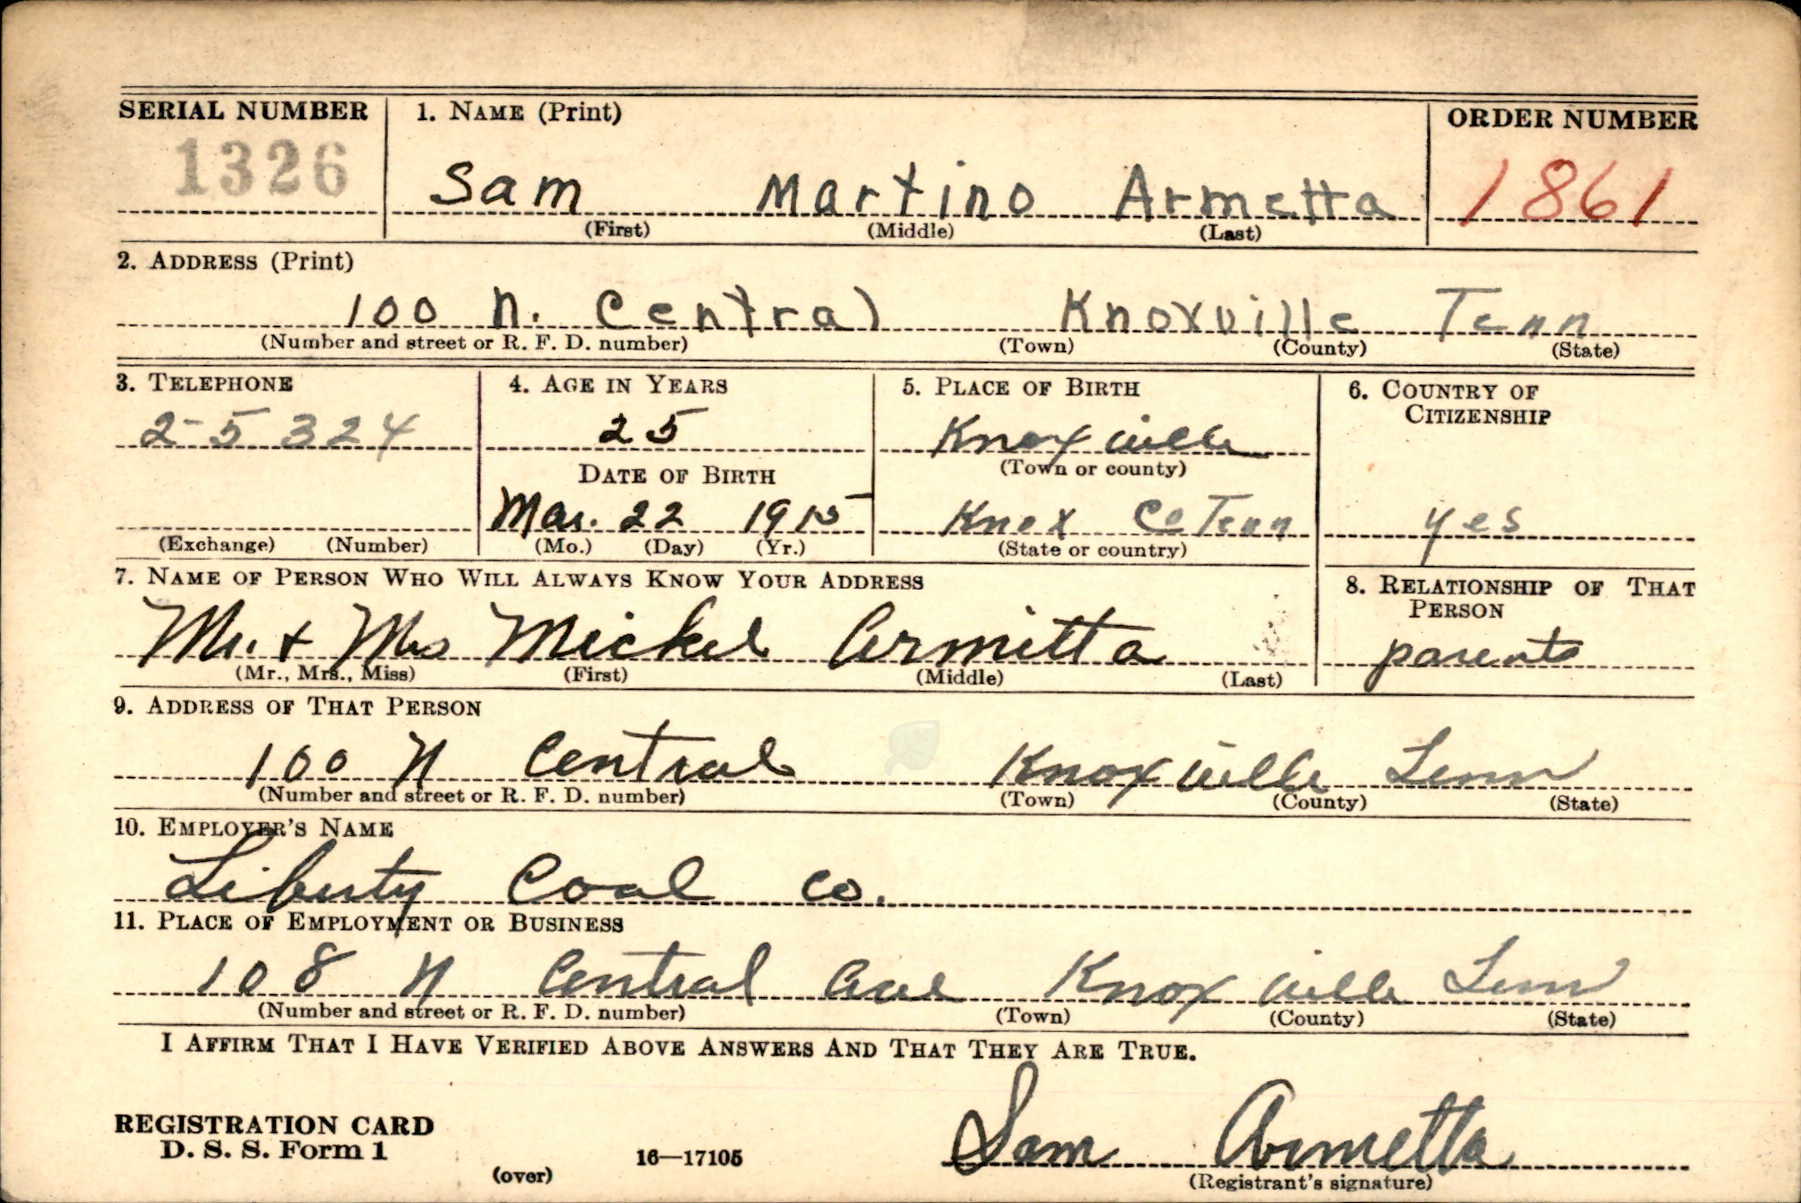 SERIAL NUMBER 1. NAME (Print) ORDER NUMBER
1326 Sam Martino Armetta 1861
(First) (Middle) (Last)
2. ADDRESS (Print)
100 N. Central Knoxville Tenn
(Number and street or R. F. D. number) (Town) (County) (State)
3. TELEPHONE 4. AGE IN YEARS 5. PLACE OF BIRTH 6. COUNTRY OF CITIZENSHIP
2-5324 25 Knoxville
DATE OF BIRTH (Town or county)
Mar. 22 1915 Knox Co Tenn yes
(Exchange) (Number) (Mo.) (Day) (Yr.) (State or country)
7. NAME OF PERSON WHO WILL ALWAYS KNOW YOUR ADDRESS 8. RELATIONSHIP OF THAT PERSON
Mr. + Mrs Mickel Armitta parents
(Mr., Mrs., Miss) (First) (Middle) (Last)
9. ADDRESS OF THAT PERSON
100 N Central Knoxville Tenn
(Number and street or R. F. D. number) (Town) (County) (State)
10. EMPLOYER'S NAME
Liberty Coal Co.
11. PLACE OF EMPLOYMENT OR BUSINESS
108 N Central Ave Knoxville Tenn
(Number and street or R. F. D. number) (Town) (County) (State)
I AFFIRM THAT I HAVE VERIFIED ABOVE ANSWERS AND THAT THEY ARE TRUE.
REGISTRATION CARD
D. S. S. Form 1 Sam Armetta
(over) 16—17105 (Registrant's signature)